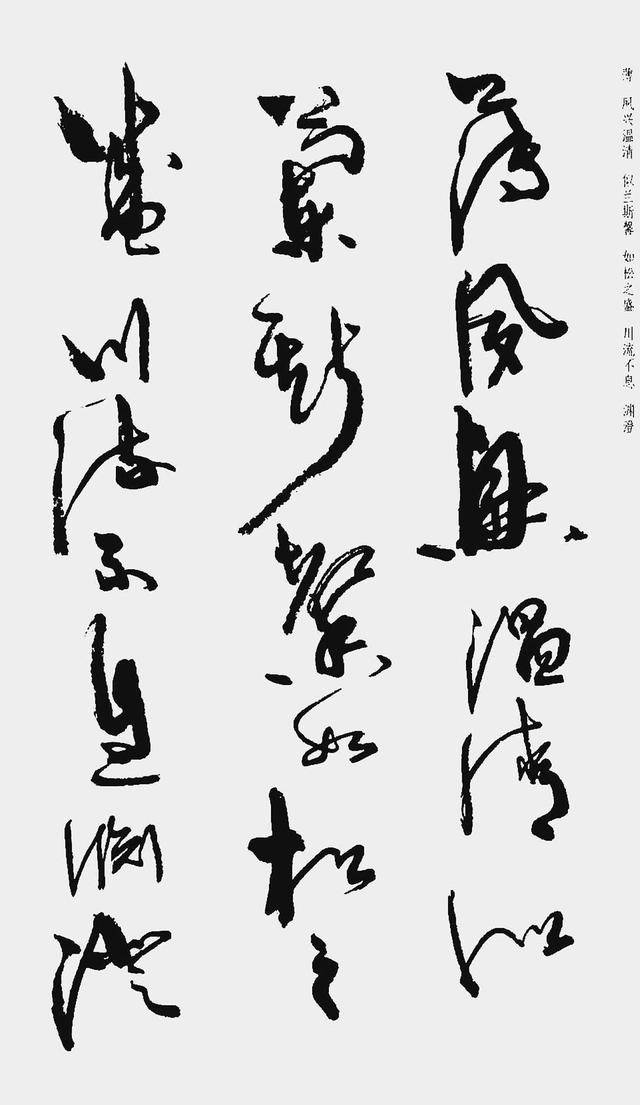 薄夙興溫清似
蘭斯馨如松之
盛川流不息淵澄
薄 夙兴温清 似兰斯馨 如松之盛 川流不息 渊澄